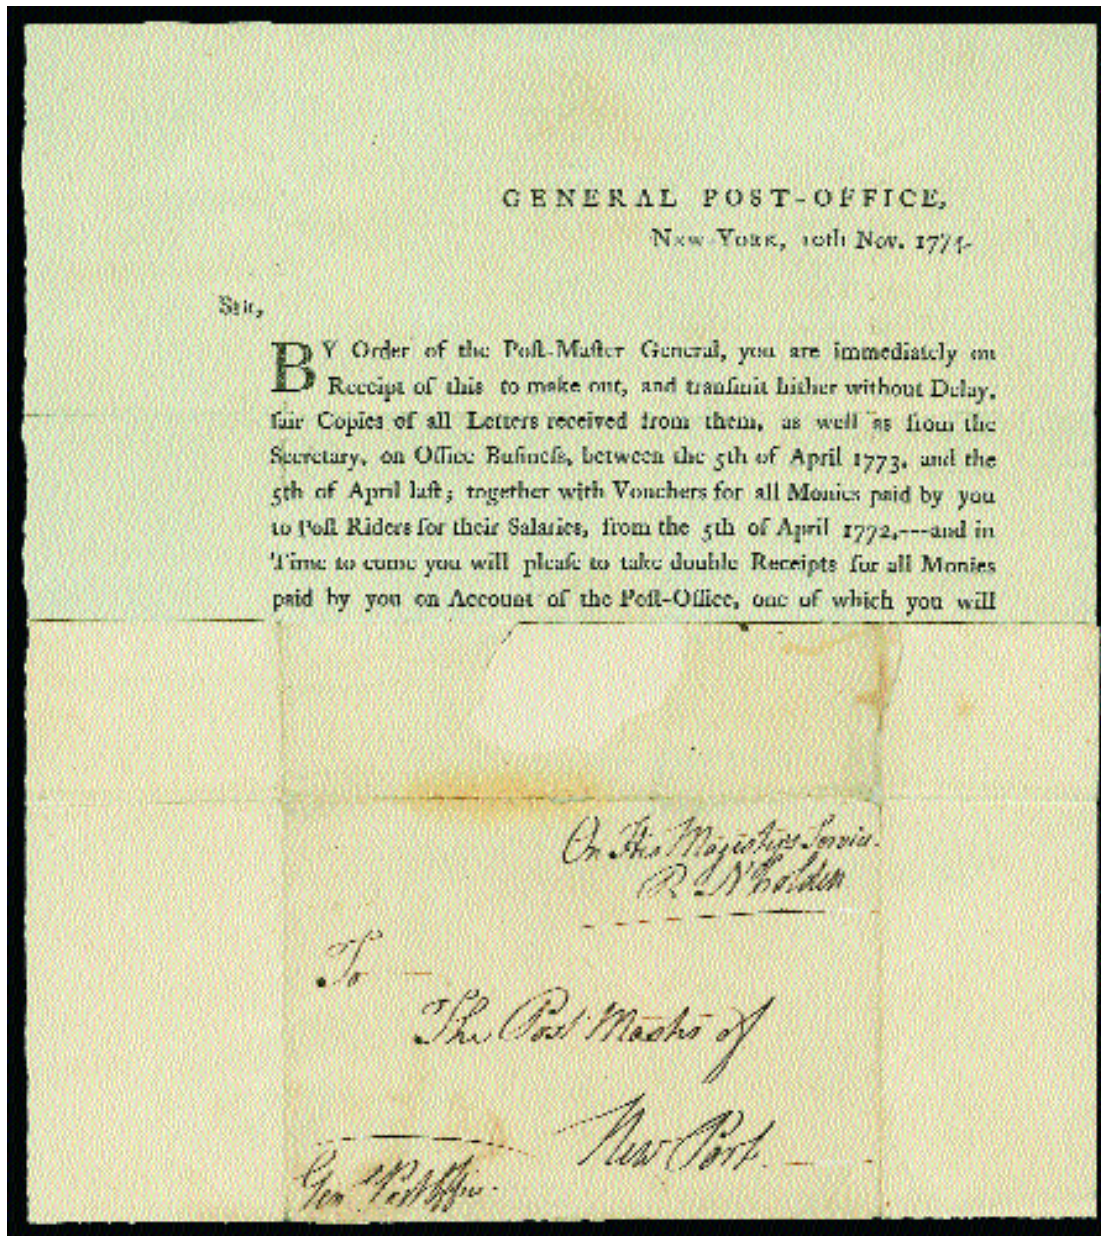 GENERAL POST-OFFICE,
NEW-YORK, 10th Nov. 177
SIR,
BY Order of the Poſt-Maſter General, you are immediately on
Receipt of this to make out, and tranſmit hither without Delay,
fair Copies of all Letters received from them, as well as from the
Secretary, on Office Buſineſs, between the 5th of April 1773, and the
5th of April laſt; together with Vouchers for all Monies paid by you
to Poſt Riders for their Salaries, from the 5th of April 1772,---and in
Time to come you will pleaſe to take double Receipts for all Monies
paid by you on Account of the Poſt-Office, one of which you will
On His Majestys Service.
R N Colden
To
The Post Mastr of
New Port
Genl Post Office.